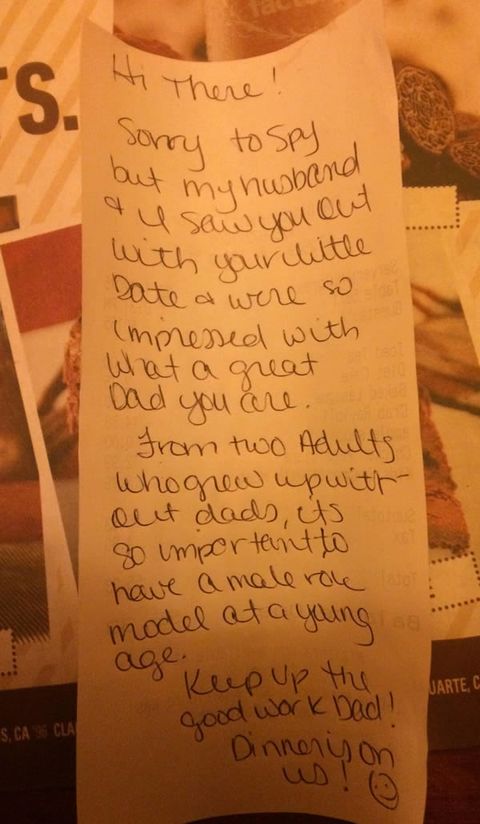 Hi There!
Sorry to spy
but my husband
& I saw you out
with your little
Date & were so
impressed with
what a great
Dad you are.
From two Adults
who grew up with-
out dads, its
so important to
have a male role
model at a young
age.
Keep up the
good work Dad!
Dinner is on
us!
TS.
S, CA '96 CLA
UARTE, C